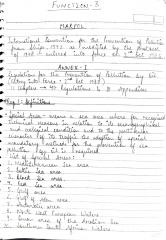 FUNCTION-3
MARPOL
International Convention for the Prevention of Pollution
from Ships, 1973 as modified by the Protocol
of 1978 - entered into force on 2nd Oct
ANNEX-I
Regulations for the Prevention of Pollution by Oil
Entry into force: 2nd Oct 1983
Chapters → Regulations & Appendices
Reg 1: Definitions
Special Area - means a sea area where for recognised
technical reasons in relation to its oceanographical
and ecological condition and to the particular
character of its traffic the adoption of special
mandatory methods for the prevention of sea
pollution by oil is required.
List of Special Areas:
1. Mediterranean Sea area
2. Baltic Sea area
3. Black Sea area
4. Red Sea area
area
6. Gulf of Aden area
7. Antarctic area
8. North West European Waters
9. Oman area of the Arabian Sea
10. Southern South African Waters